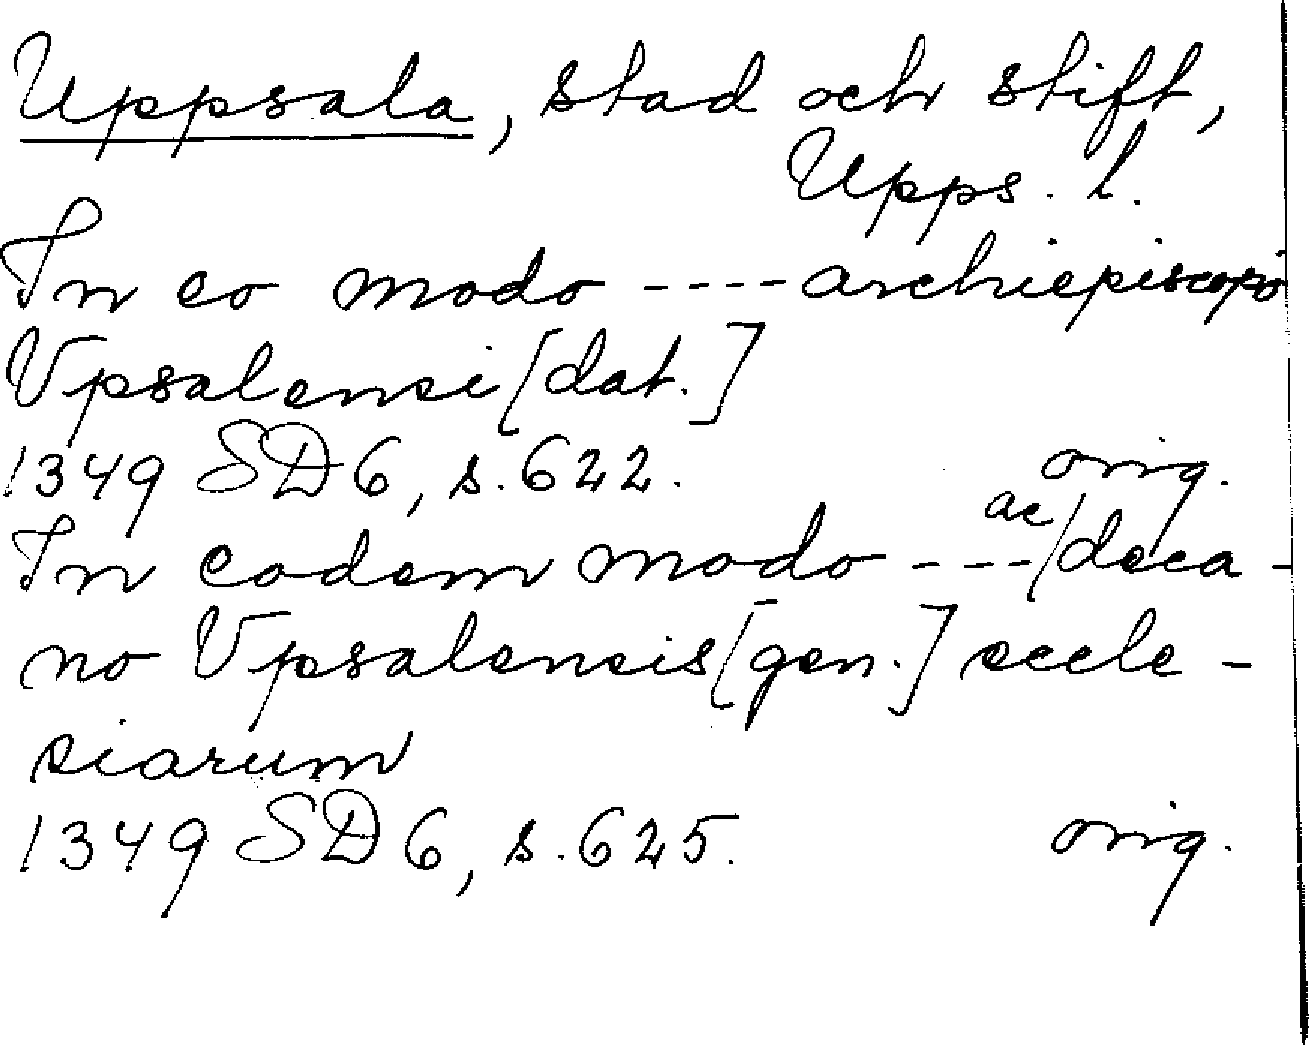 Uppsala, stad och stift,
Upps. l.
In eo modo ---- archiepiscopo
Vpsalensi [dat.]
1349 SD 6, s. 622. orig.
In eodem modo --- ac/deca-
no Vpsalensis [gen.] eccle-
siarum
1349 SD 6, s. 625. orig.